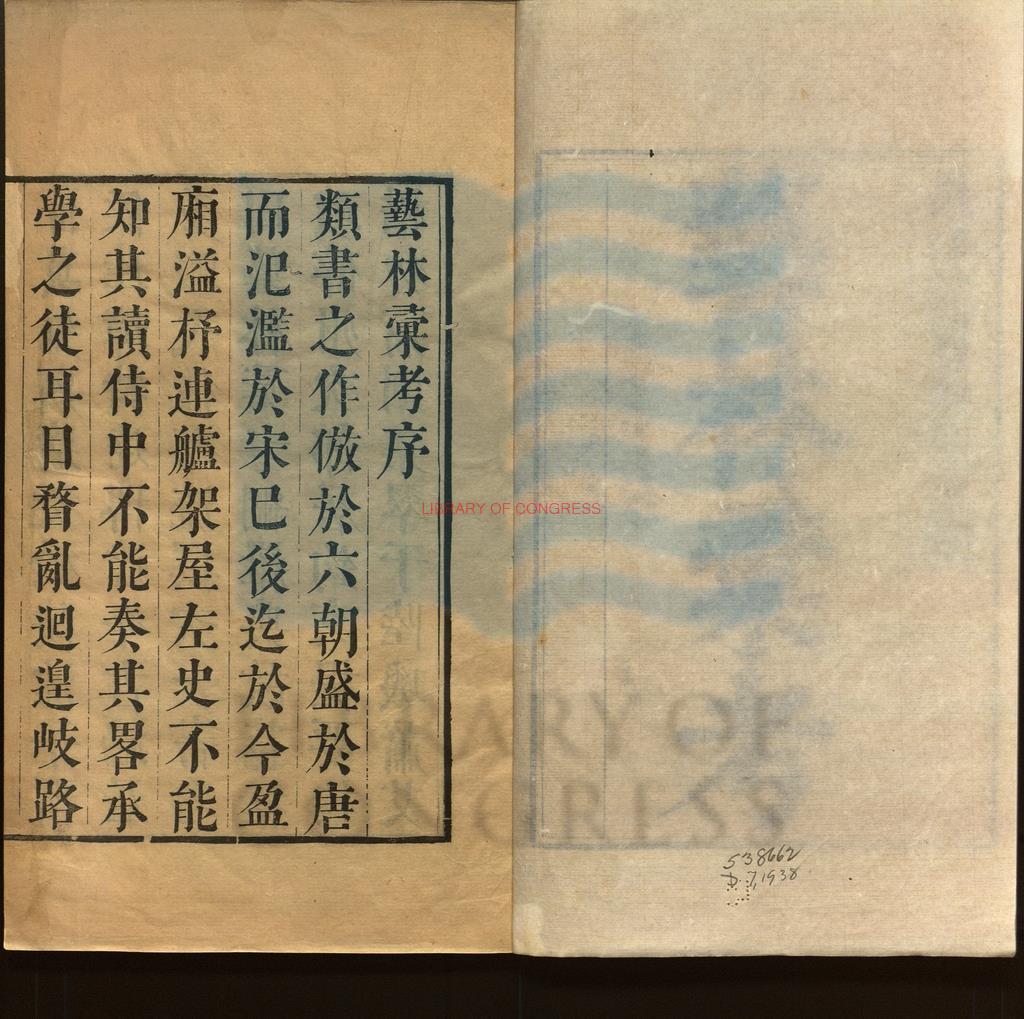 藝林彙考序
類書之作倣於六朝盛於唐
而氾濫於宋巳後迄於今盈
廂溢杼連艫架屋左史不能
知其讀侍中不能奏其畧承
學之徒耳目瞀亂迴遑岐路
LIBRARY OF CONGRESS
538662
D. 7, 1938